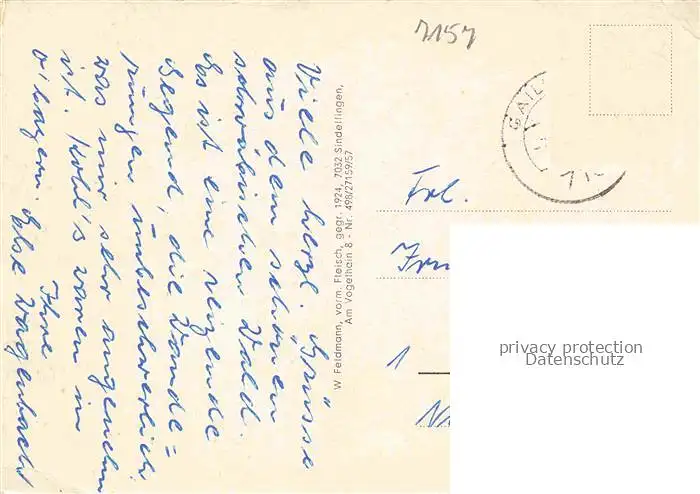 7157
Viele herzl. Grüsse
aus dem schönen
schwäbischen Wald.
Es ist eine reizende
Gegend, die Wande=
rungen unbeschwerlich
was mir sehr angenehm
ist. Kohl's waren in
O'bayern.
Ihre
Else Wagenbach
W. Feldmann, vorm. Fleisch, gegr. 1924, 7032 Sindelfingen,
Am Vogelhain 8 - Nr. 498/27159/57
GAIL
Frl.
1
privacy protection
Datenschutz